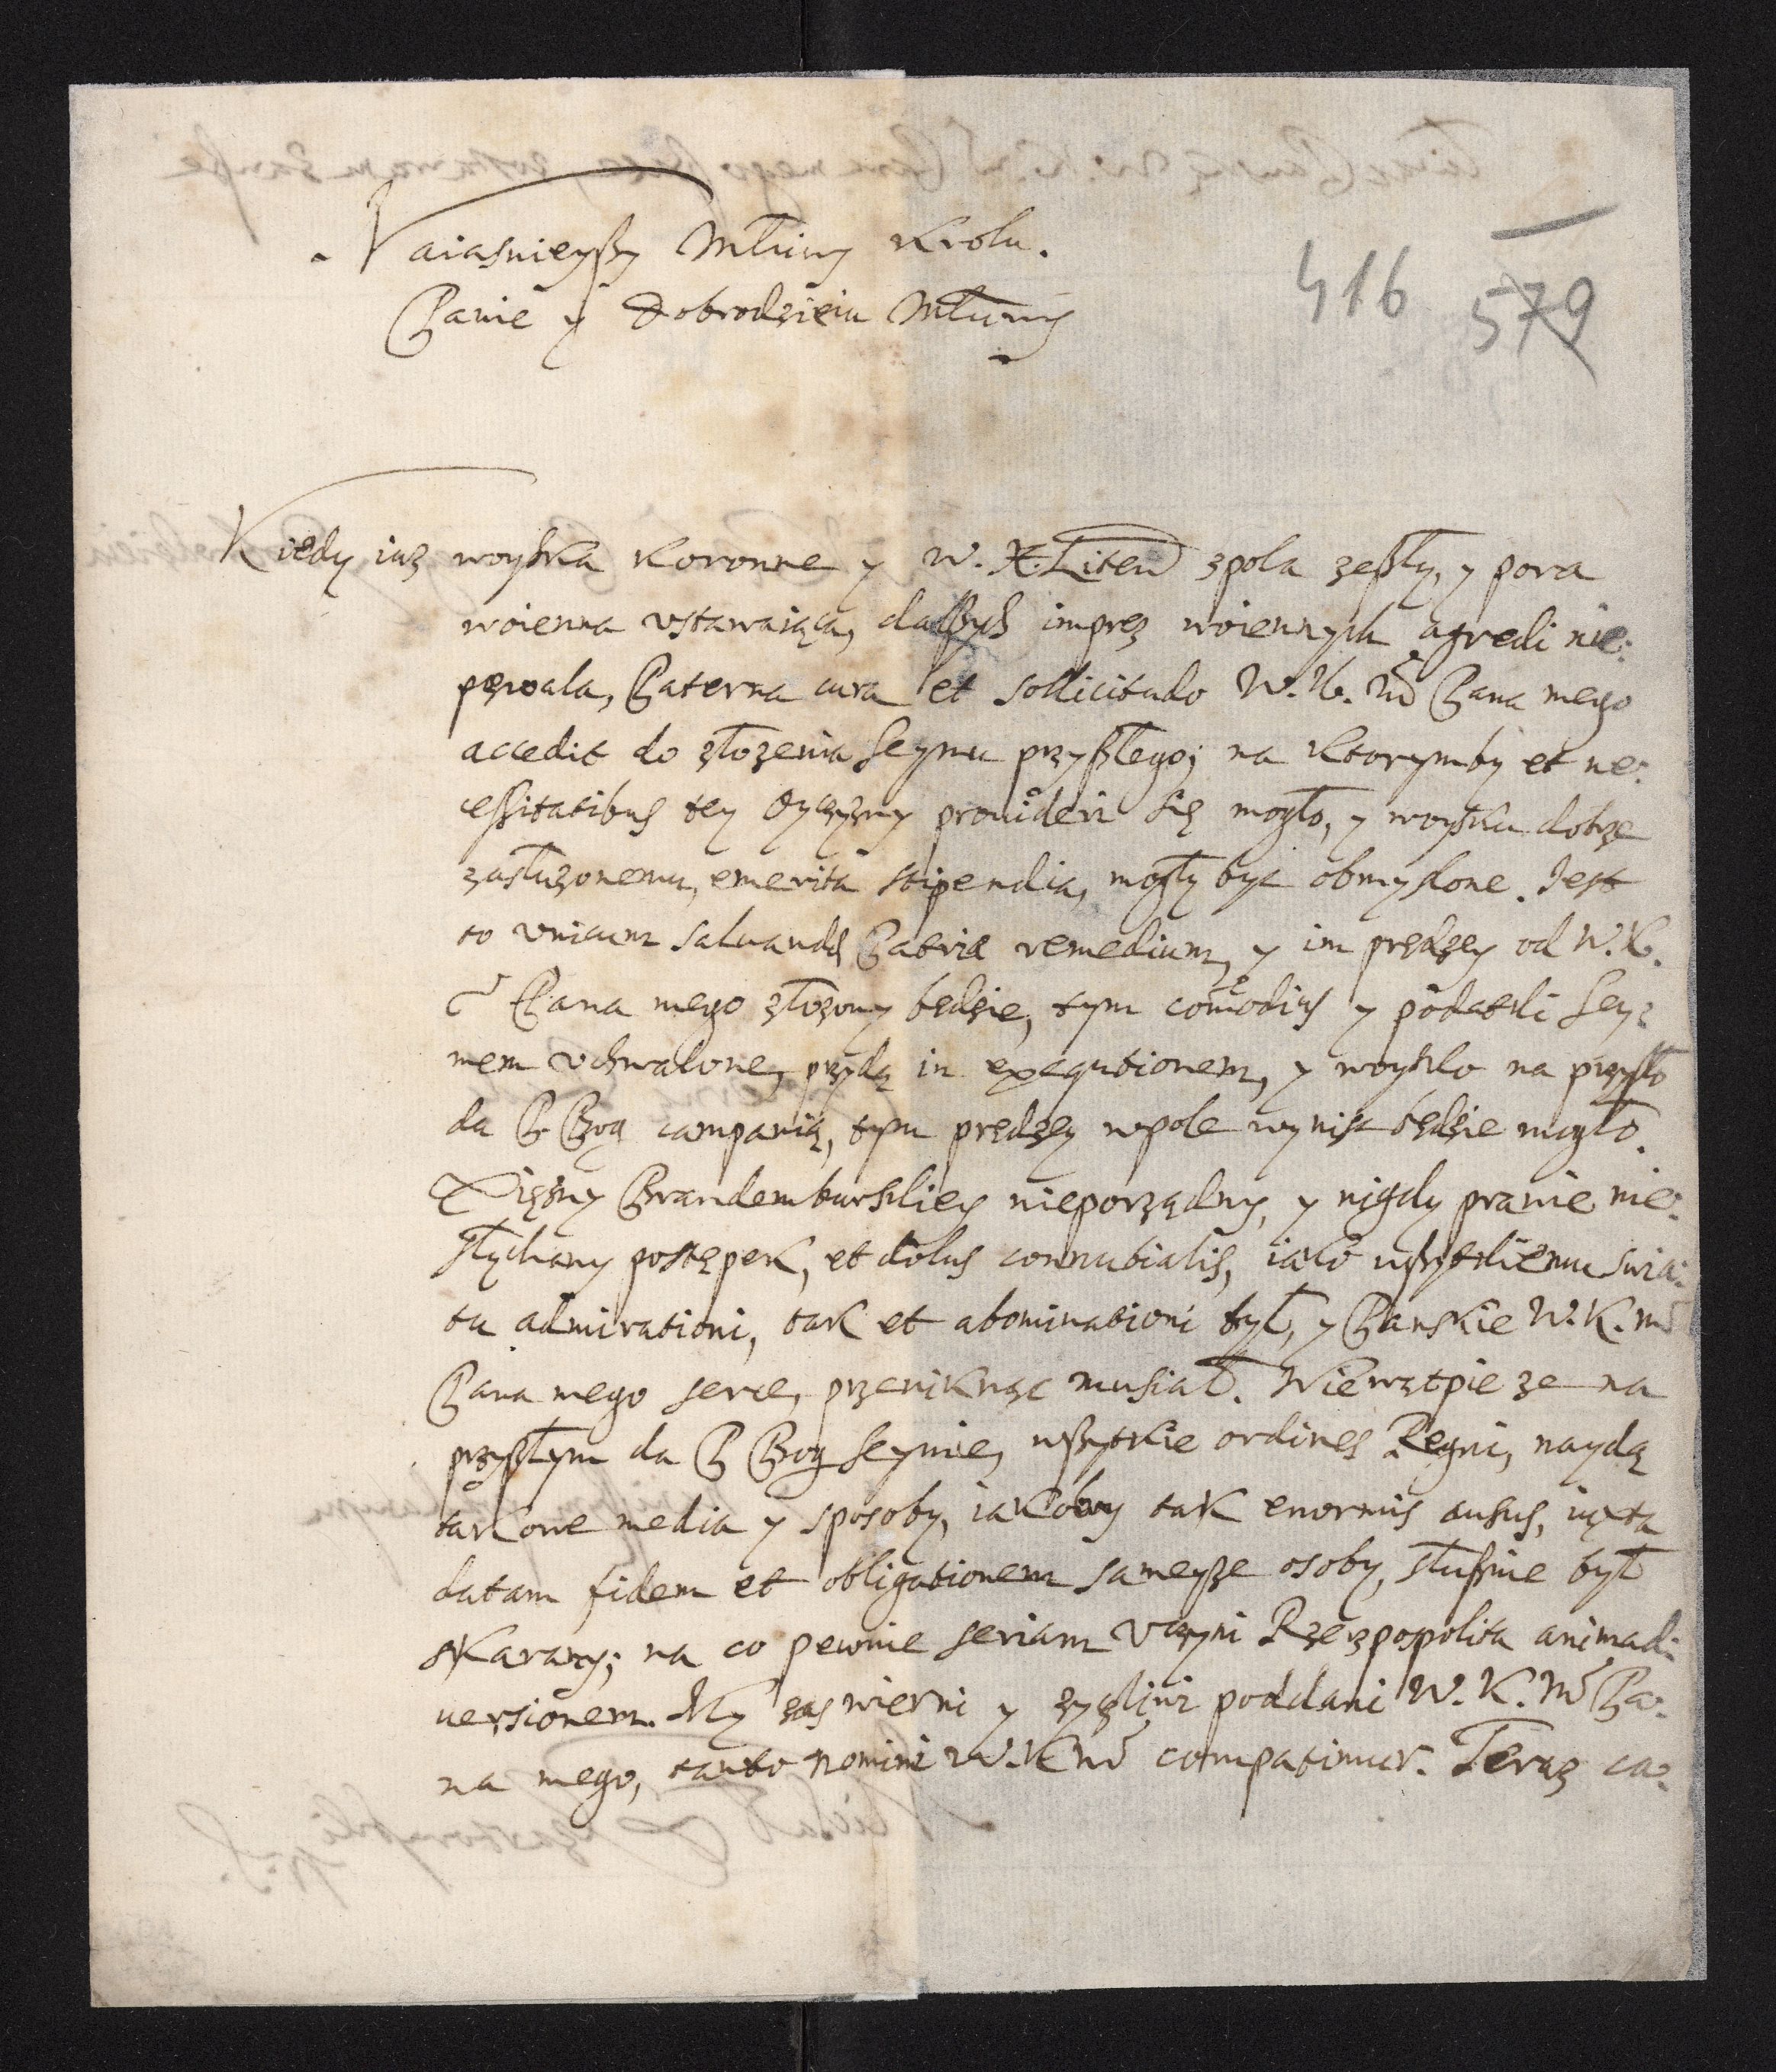 Naiasnieyszy Młciwy Krolu.
Panie y Dobrodzieiu Młciwy
416 579
Kiedy iuz woyska Koronne y W. X. Litew zpola zeszły, y pora
woienna ustawaiąca, dalszych imprez woiennych agredi nie:
pozwala, Paterna cura et sollicitudo W. K. Mci Pana mego
accedit do złozenia Seymu przyszłego; na ktorymby et ne:
cessitatibus tey Oyczyzny prouideri się mogło, y woysku dobrze
zasłuzonemu, emerita stipendia, mogły byc obmyslone. Jest
to unicum saluandę Patrię remedium, y im prędzey od W. K.
Pana mego złozony będzie, tym comodius y podatki Sey:
mem uchwalone, przydą in exequtionem, y woysko na przyszło
da P. Bog campanią, tym prędzey wpole wynisc będzie mogło.
Xięzny Brandemburskiey nieporządny, y nigdy prawie nie:
słychany postępek, et dolus connubialis, iako wszytkiemu swia:
tu admirationi, tak et abominationi był, y Panskie W. K. Mci
Pana mego serce, przeniknąc musiał. Niewątpie ze na
przyszłym da P Bog Seymie, wszytkie ordines Regni, naydą
takowe media y sposoby, iakoby tak enormis ausus, iuxta
datam fidem et obligationem sameyze osoby, słusznie był
skarany; na co pewnie seriam uczyni Rzeczpospolita animad:
uersionem. My zas wierni y zyczliwi poddani W. K. Mci Pa:
na mego, tanto nomini W. K Mci compatimur. Teraz ca: